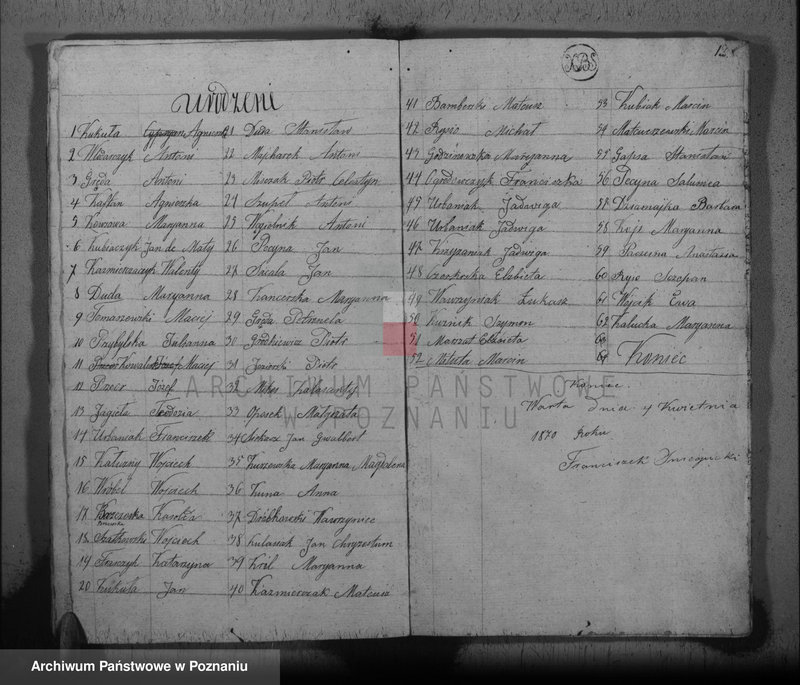 Urodzeni
1 Kukuła Agnieszka
2 Włodarczyk Antoni
3 Gręda Antoni
4 Kaffka Agnieszka
5 Kowzowa Maryanna
6 Kubiaczyk Jan de Maty
7 Kaźmierczak Walenty
8 Duda Maryanna
9 Tomaszewski Maciej
10 Przybylska Julianna
11 Maciej
12 Przeco Józef
13 Jagieła Teodozia
14 Urbaniak Franciszek
15 Katarzny Wojciech
16 Wróbel Wojciech
17 Karolla
18 Szatkowski Wojciech
19 Franczyk Katarzyna
20 Kukuła Jan
21 Duda Stanisław
22 Majcharek Antoni
23 Muszak Piotr Celestyn
24 Szupel Antoni
25 Węgielnik Antoni
26 Pecyna Jan
27 Sacała Jan
28 Kancerska Maryanna
29 Gręda Petronela
30 Grodkiewicz Piotr
31 Jeziorski Piotr
32
33 Opasek Małgorzata
34 Siekacz Jan Gwalbert
35 Kurzewska Maryanna Magdalena
36 Kuna Anna
37 Dziubkowski Wawrzyniec
38 Kulasiak Jan Chryzostum
39 Król Maryanna
40 Kaźmierczak Mateusz
12
41 Bamberski Mateusz
42 Rysio Michał
43 Godzinowska Maryanna
44 Ogrodowczyk Franciszka
45 Urbaniak Jadwiga
46 Urbaniak Jadwiga
47 Jadwiga
48 Czerkoska Elżbieta
49 Wawrzyniak Łukasz
50 Kuźnik Szymon
51 Elżbieta
52 Marcin
53 Kubiak Marcin
54 Matuszewski Marcin
55 Gapsa Stanisław
56 Pecyna Salomea
58 Barbara
58 Kije Maryanna
59 Anastazia
60 Rysie Szczepan
61 Wojcik Ewa
62 Kałucka Maryanna
63
64 Koniec
Koniec.
Warta dnia 4 Kwietnia
1870 Roku
Franciszek
ARCHIWUM PAŃSTWOWE
W POZNANIU
Archiwum Państwowe w Poznaniu